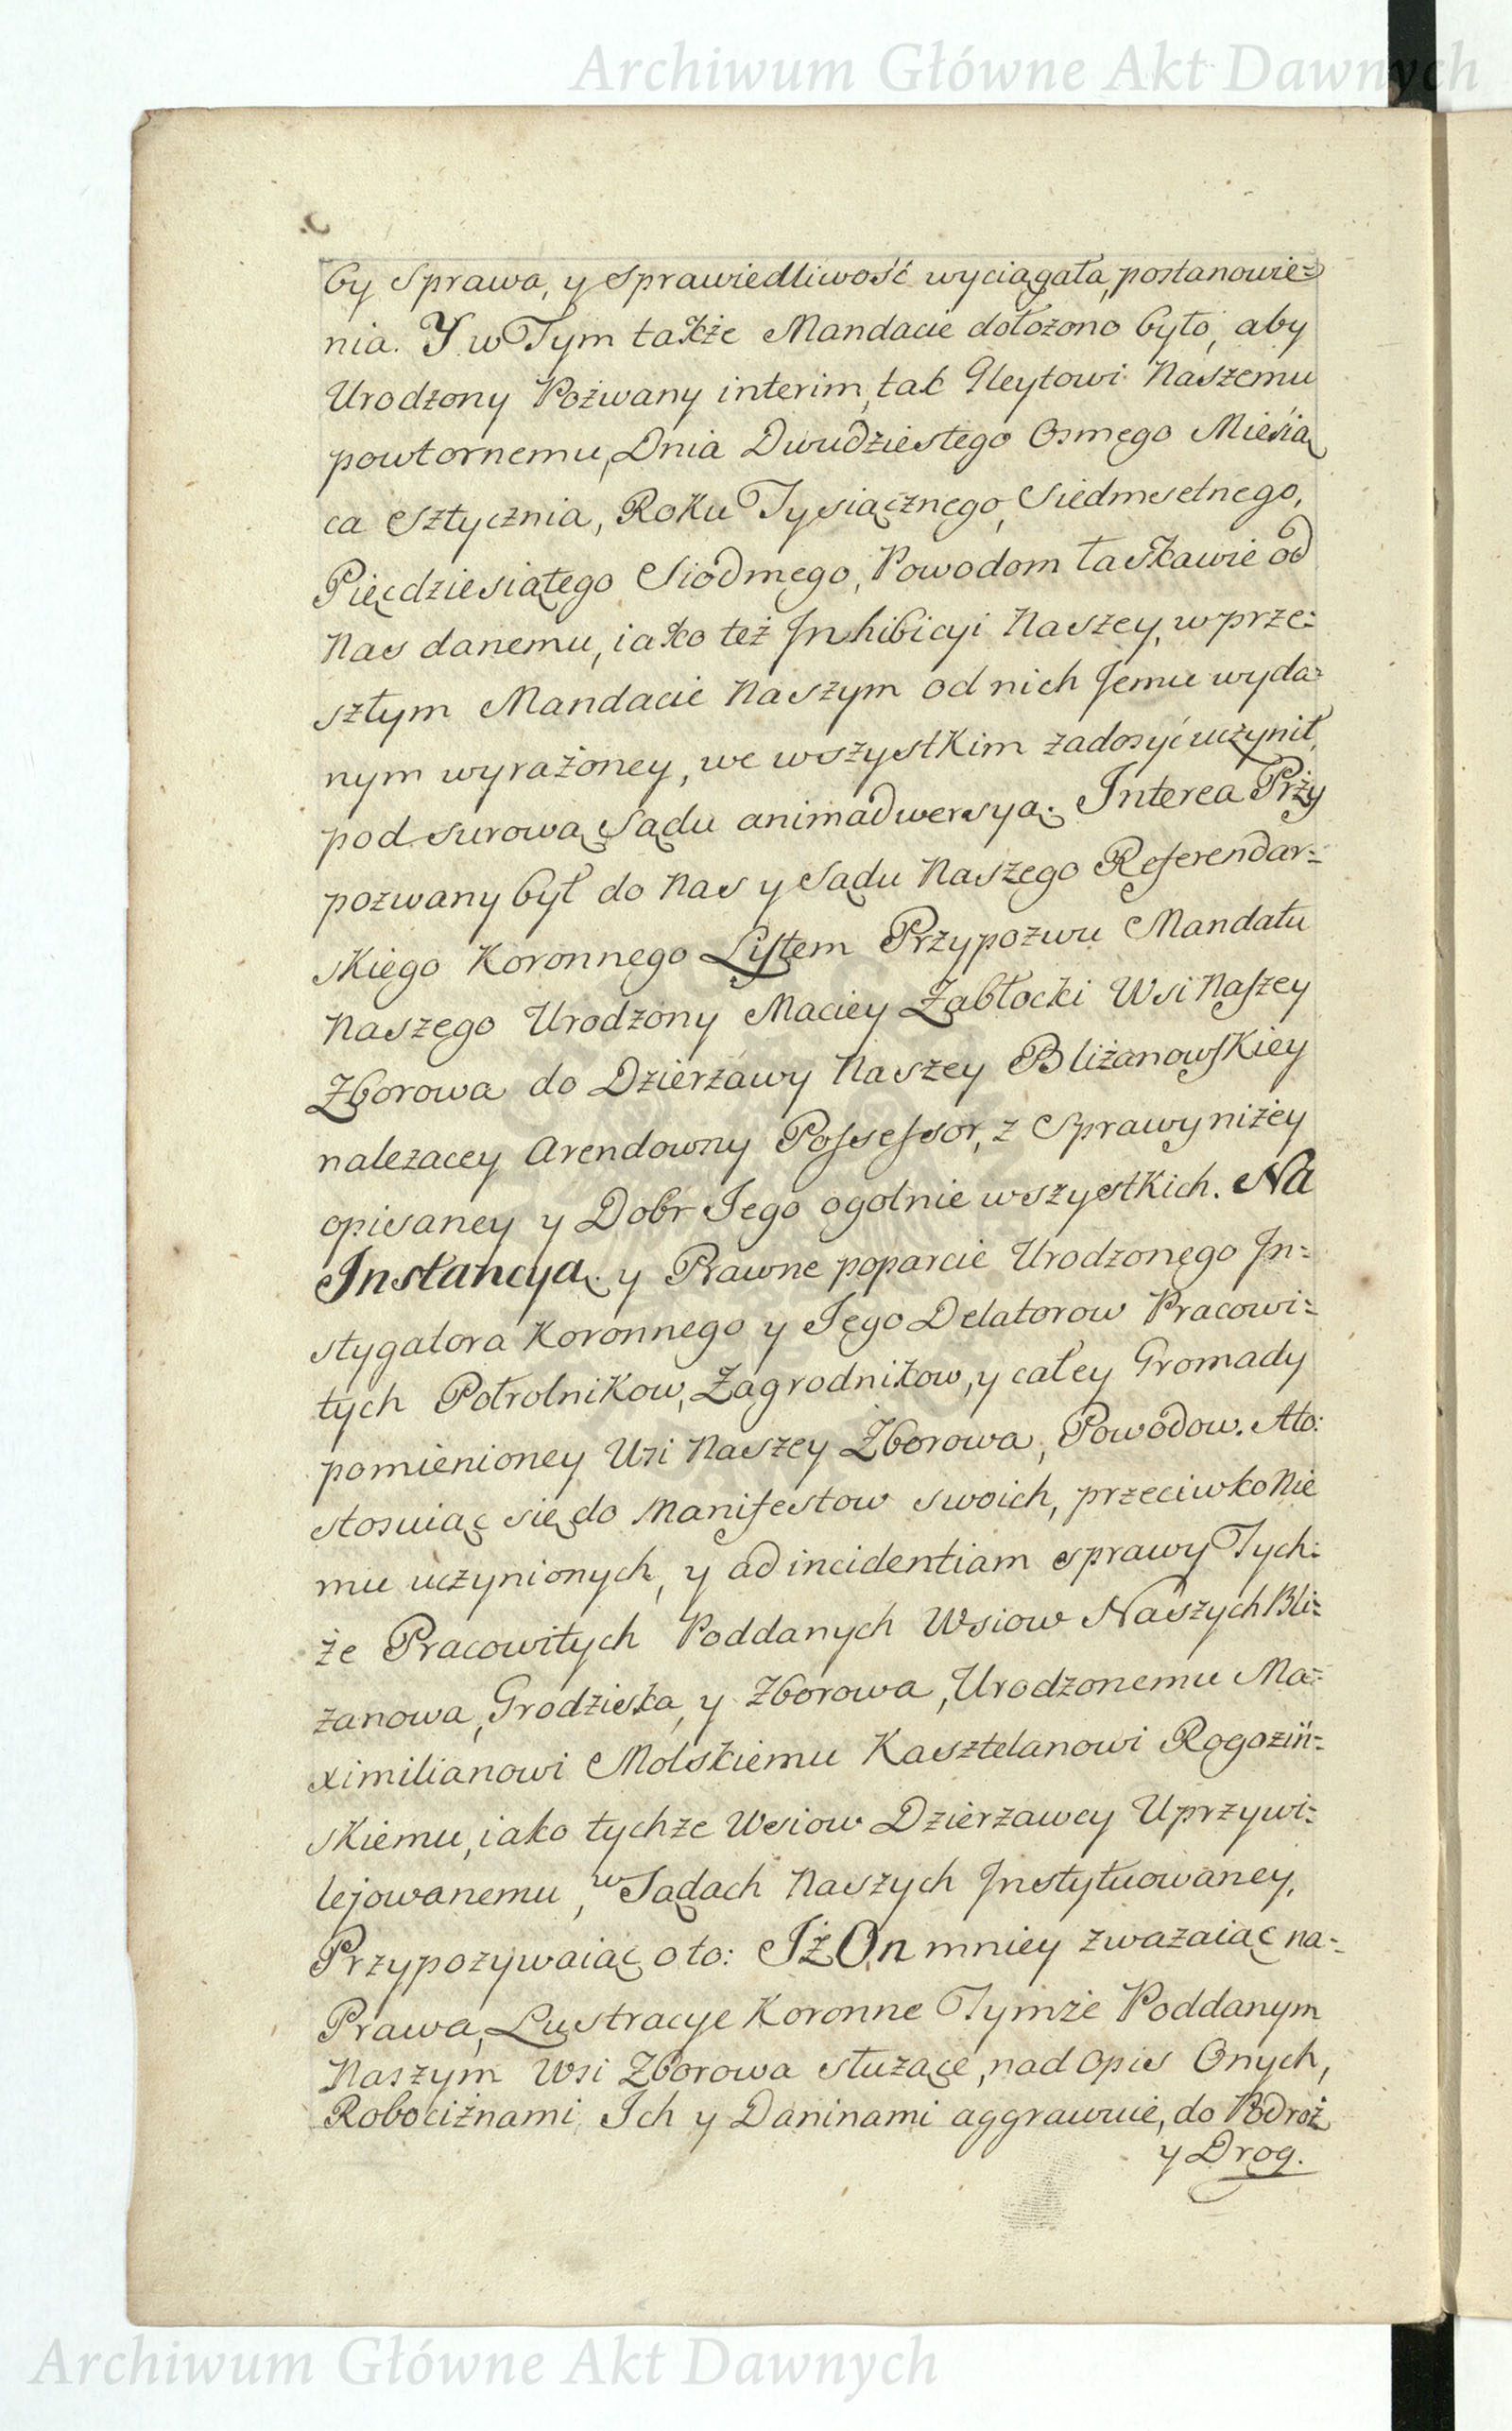 Archiwum Główne Akt Dawnych
by Sprawa, y Sprawiedliwość wyciągała, postanowie=
nia. Y w Tym także Mandacie dołożono było, aby
Urodzony Pozwany interim, tak Gleytowi Naszemu
powtornemu, Dnia Dwudziestego Osmego Miesią
ca Sztycznia, Roku Tysiącznego, Siedmsetnego,
Pięcdziesiątego Siodmego, Powodom łaskawie od
Nas danemu, iako też Inhibicyi Naszey, w prze=
szłym Mandacie Naszym od nich Jemu wyda=
nym wyrażoney, we wszystkim zadosyć uczynił,
pod surową Sądu animadwersyą. Interea Przy
pozwany był do Nas y Sądu Naszego Referendar=
skiego Koronnego Listem Przypozwu Mandatu
Naszego Urodzony Maciey Zabłocki Wsi Naszey
Zborowa do Dzierzawy Naszey Bliżanowskiey
nalezacey Arendowny Possessor, z Sprawy niżey
opisaney y Dobr Jego ogolnie wszystkich. Na
Instancyą y Prawne poparcie Urodzonego In=
stygatora Koronnego y Jego Delatorow Pracowi=
tych Połrolnikow, Zagrodnikow, y całey Gromady
pomienioney Wsi Naszey Zborowa, Powodow. Ato:
stosuiąc się do Manifestow swoich, przeciwko Nie
mu uczynionych, y ad incidentiam sprawy Tych=
że Pracowitych Poddanych Wsiow Naszych Bli=
zanowa, Grodziska, y Zborowa, Urodzonemu Ma=
ximilianowi Molskiemu Kasztelanowi Rogoziń=
skiemu, iako tychze Wsiow Dzierzawcy Uprzywi=
lejowanemu, w Sądach Naszych Instytuowaney,
Przypozywaiąc oto: Iż On mniey zwazaiąc na=
Prawa, Lustracye Koronne Tymże Poddanym
Naszym Wsi Zborowa służące, nad Opis Onych,
Robociznami Ich y Daninami aggrawuie, do Podroż
y Drog.
Archiwum Główne Akt Dawnych